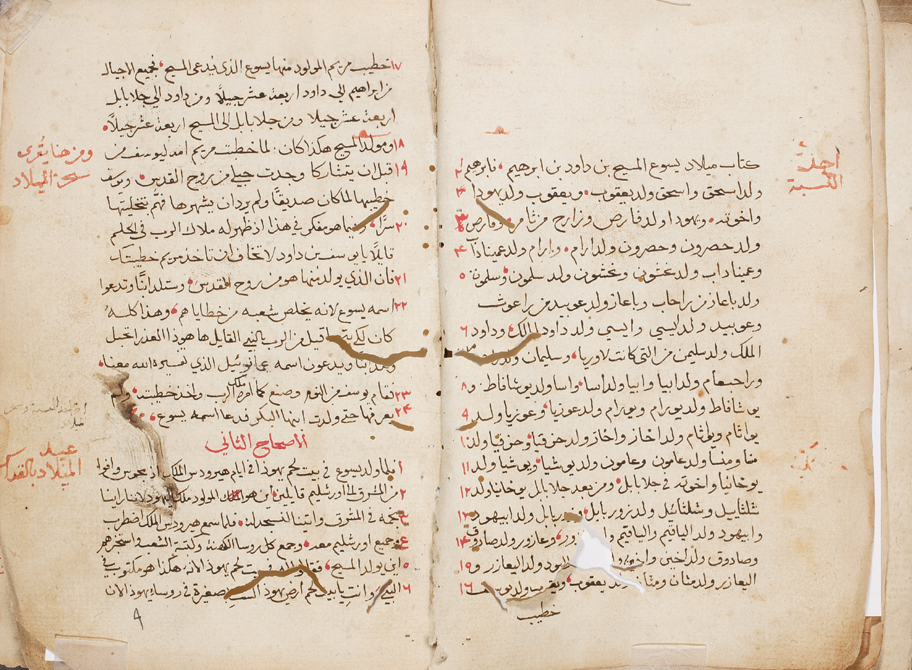 احد
النسبة
كتاب ميلاد يسوع المسيح بن داود بن ابرهيم • فابرهيم ٢
ولد اسحق واسحق ولد يعقوب • ويعقوب ولد يهودا ٣
واخوته • ويهودا ولد فارص وزارح من ثامر • وفارص
ولد حصرون وحصرون ولد ارام • وارام ولد عميناداب ٤
وعميناداب ولد نحشون ونحشون ولد سلمون • وسلمون ٥
ولد باعاز من راحاب وباعاز ولد عوبيد من راعوث
وعوبيد ولد ايسي وايسي ولد داود الملك • وداود ٦
الملك ولد سليمن من التي كانت لاوريا • وسليمان ولد
وراحبعام ولد ابيا وابيا ولد اسا • واسا ولد يوشافاط • و ٨
يوشافاط ولد يورام ويورام ولد عوزيا • وعوزيا ولد ٩
يواثام ويواثام ولد احاز واحاز ولد حزقيا • وحزقيا ولد ١٠
منسا ومنسا ولد عامون وعامون ولد يوشيا • ويوشيا ولد ١١
يوخانيا واخوته في جلا بابل • ومن بعد جلا بابل يوخانيا ولد ١٢
شلثاييل وشلثاييل ولد زوربابل • وزوربابل ولد ابيهود ١٣
وابيهود ولد الياقيم والياقيم • وعازور ولد صادوق ١٤
وصادوق ولد اخين واخين ولد اليعازر • و ١٥
اليعازر ولد متان ومتان ولد يعقوب • ويعقوب ولد يوسف ١٦
خطيب
١٧ خطيب مريم المولود منها يسوع الذي يدعى المسيح • فجميع الاجيال
من ابراهيم الى داود اربعة عشر جيلا ومن داود الى جلا بابل
اربعة عشر جيلا ومن جلا بابل الى المسيح اربعة عشر جيلا •
١٨ ومولد المسيح هكذا كان • لما خطبت مريم امه ليوسف من
١٩ قبل ان يتشاركا وجدت حبلى من روح القدس • ويوسف
خطيبها لما كان صديقا ولم يرد ان يشهرها فهم بتخليتها
٢٠ سرا • وفيما هو مفكر في هذا اذ ظهر له ملاك الرب في الحلم
قايلا يا يوسف بن داود لا تخاف ان تاخذ مريم خطيبتك
٢١ فان الذي يولد منها هو من روح القدس • وستلد ابنا وتدعوا
٢٢ اسمه يسوع لانه يخلص شعبه من خطاياهم • وهذا كله
كان لكي يتم ما قيل من الرب بالنبي القايل ها هوذا العذرا تحبل
وتلد ابنا ويدعون اسمه عمانوييل الذي تفسيره الله معنا •
٢٣ فقام يوسف من النوم وصنع كما امره ملاك الرب واخذ خطيبته •
٢٤ يعرفها حتى ولدت ابنها البكر فدعا اسمه يسوع •
الاصحاح الثاني
١ فلما ولد يسوع في بيت لحم يهوذا في ايام هيرودس الملك
٢ من المشرق الى اورشليم قايلين • اين هو المولود ملك اليهود لاننا راينا
٣ نجمه في المشرق واتينا لنسجد له • فلما سمع هيرودس الملك اضطرب
٤ وجميع اورشليم معه • وجمع كل روسا الكهنة وكتبة الشعب واستخبرهم
٥ اين يولد المسيح • فقالوا له في بيت لحم يهوذا لانه هكذا هو مكتوب في
٦ النبي وانت يا بيت لحم ارض يهوذا لست صغيرة في روسا يهوذا لان
ومن هنا يقرى
سحر الميلاد
عيد
الميلاد بالقداس